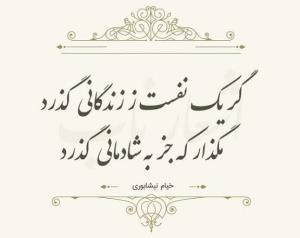 گر یک نفست ز زندگانی گذرد
مگذار که جز به شادمانی گذرد
خیام نیشابوری